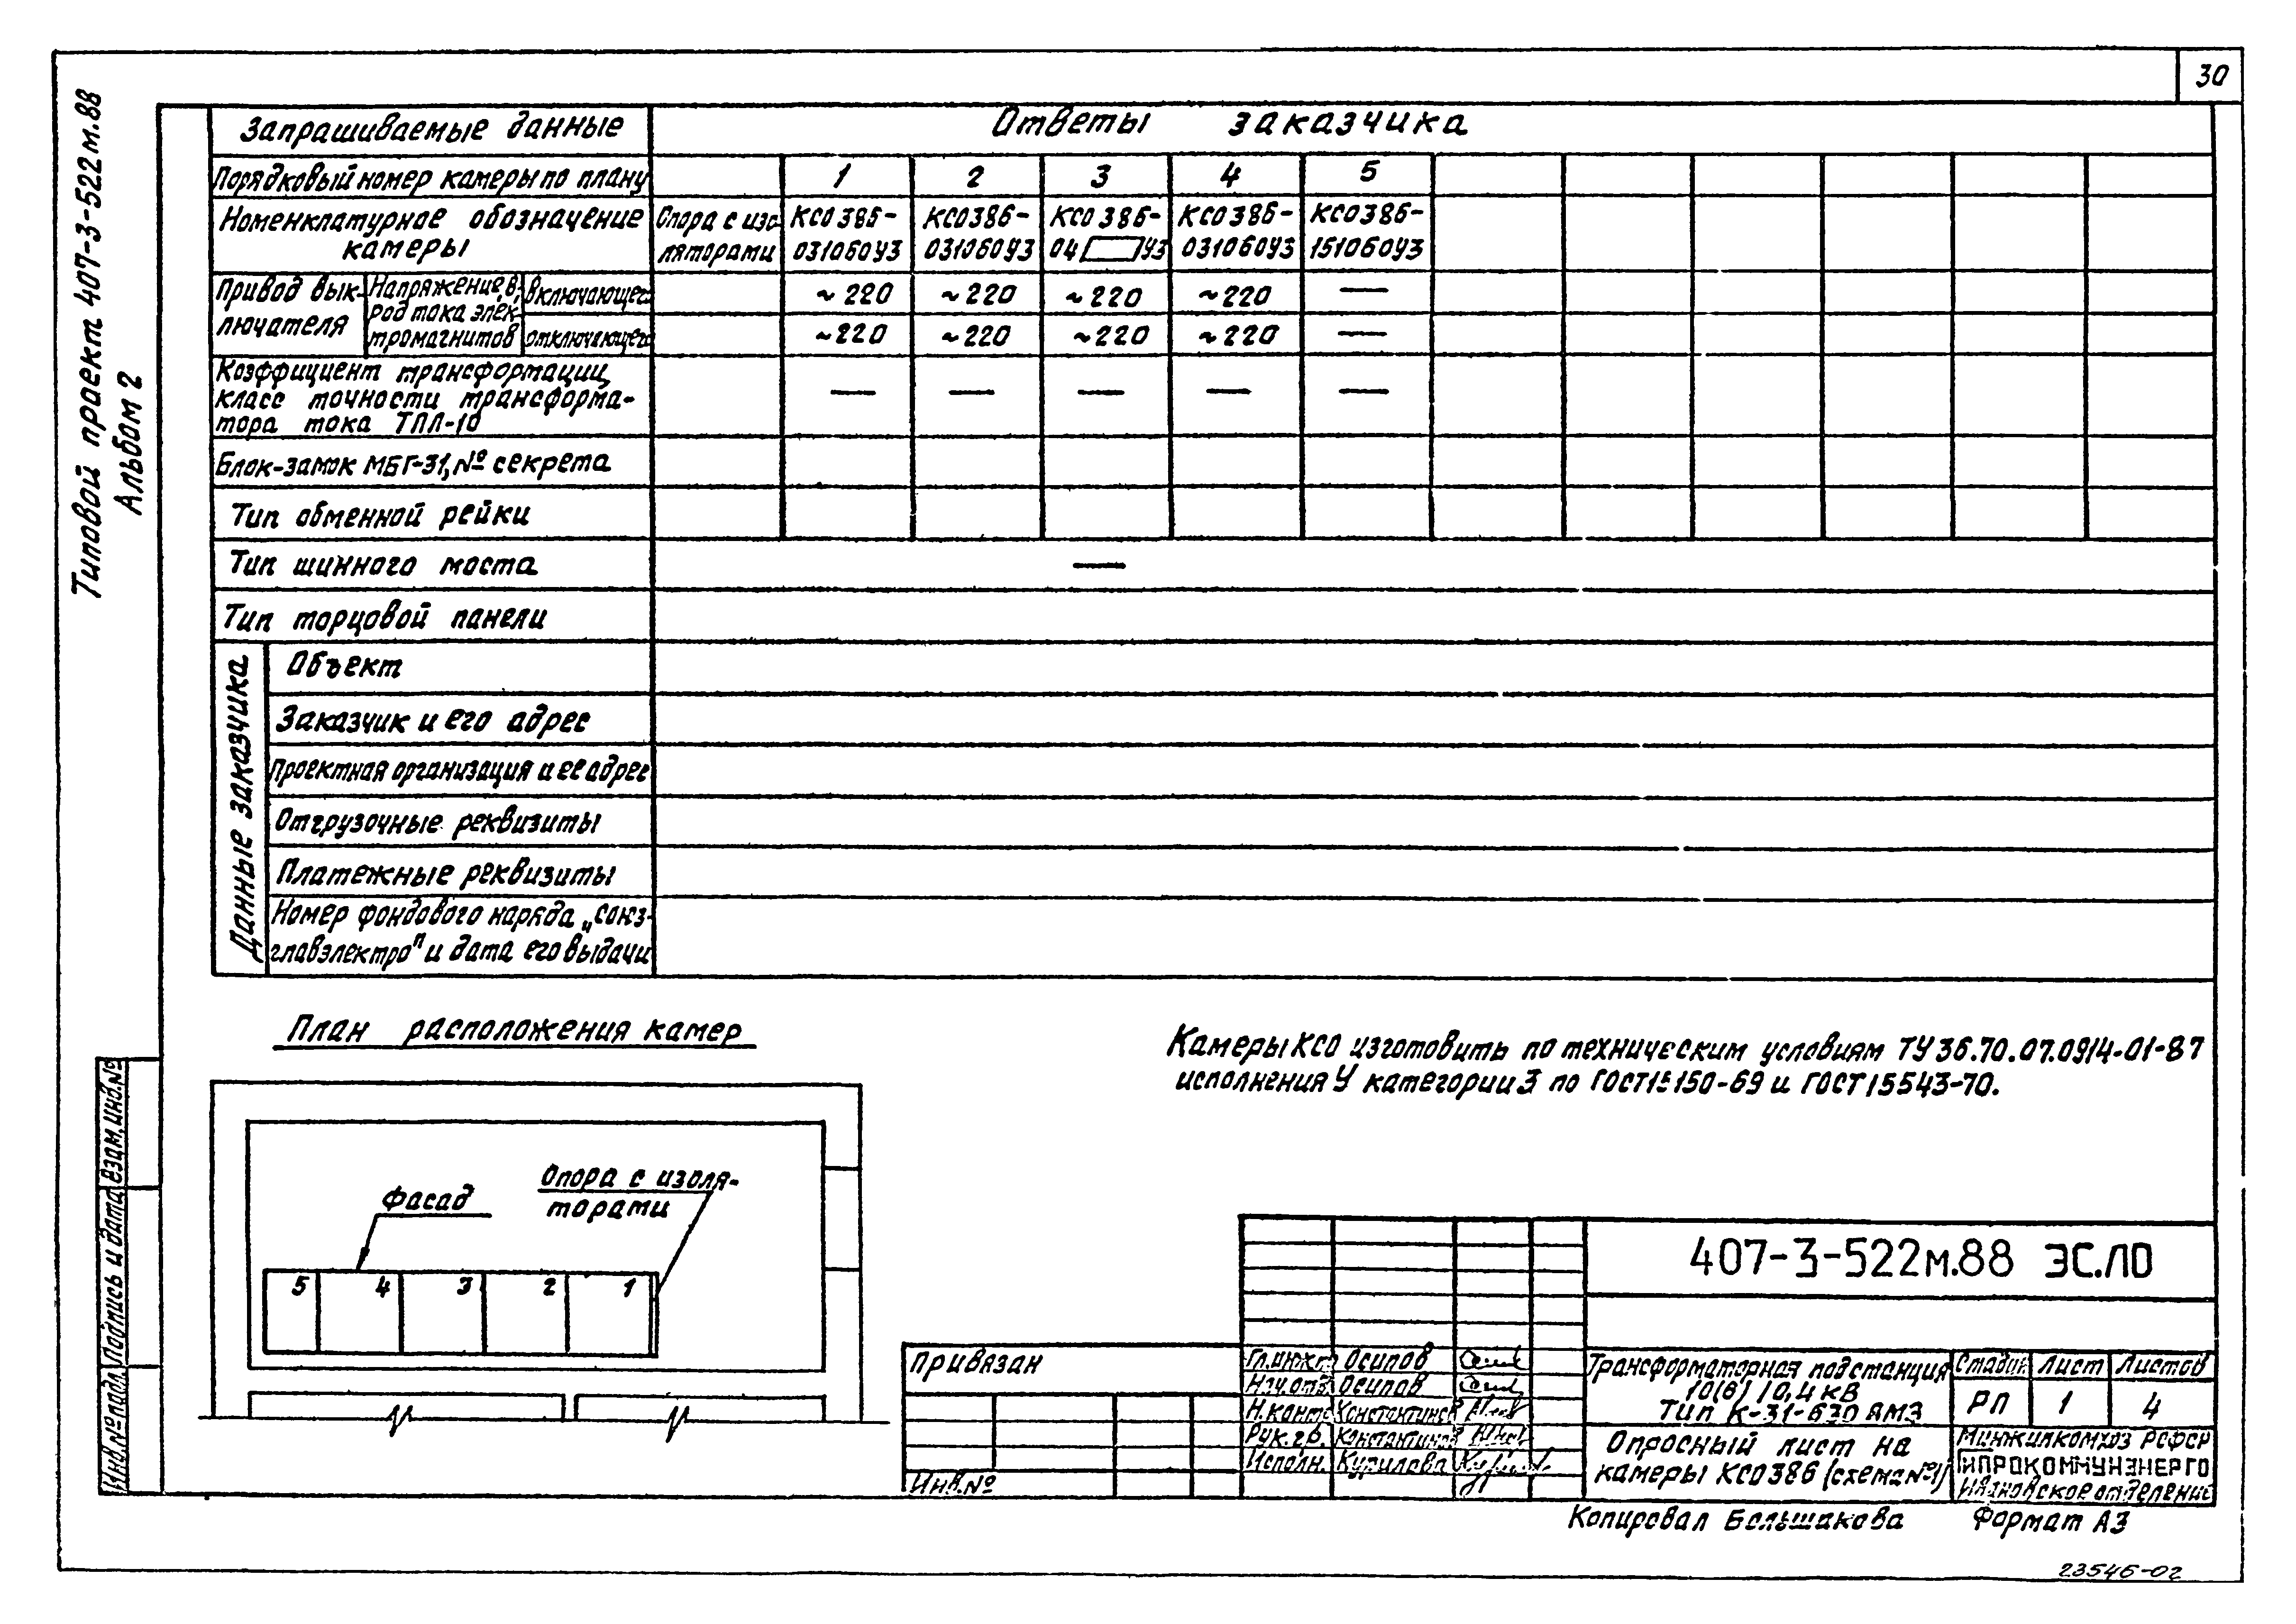 30
Типовой проект 407-3-522м.88
Альбом 2
Запрашиваемые данные
Ответы заказчика
Порядковый номер камеры по плану
1 2 3 4 5
Номенклатурное обозначение
камеры
Опора с изо-
ляторами
КСО386-
031060У3
КСО386-
031060У3
КСО386-
04 У3
КСО386-
031060У3
КСО386-
151060У3
Привод вык-
лючателя
Напряжение, В,
род тока элек-
тромагнитов
включающего
~220 ~220 ~220 ~220 —
отключающего
~220 ~220 ~220 ~220 —
Коэффициент трансформации,
класс точности трансформа-
тора тока ТПЛ-10
— — — — —
Блок-замок МБГ-31, № секрета
Тип обменной рейки
Тип шинного моста
—
Тип торцовой панели
Данные заказчика
Объект
Заказчик и его адрес
Проектная организация и ее адрес
Отгрузочные реквизиты
Платежные реквизиты
Номер фондового наряда „Союз-
главэлектро" и дата его выдачи
План расположения камер
Фасад
Опора с изоля-
торами
5 4 3 2 1
Камеры КСО изготовить по техническим условиям ТУ36.70.07.0914-01-87
исполнения У категории 3 по ГОСТ15150-69 и ГОСТ15543-70.
Взам.инв.№
Подпись и дата
Инв.№ подл.
Привязан
Инв.№
407-3-522м.88 ЭС.ЛО
Гл.инж.п Осипов
Нач.отд. Осипов
Н.контр. Константинов
Рук.гр. Константинов
Исполн. Курилова
Трансформаторная подстанция
10(6)/0,4 кВ
Тип К-31-630 АМ3
Стадия Лист Листов
РП 1 4
Опросный лист на
камеры КСО386 (схема №1)
Минжилкомхоз РСФСР
ГИПРОКОММУНЭНЕРГО
Ивановское отделение
Копировал Большакова Формат А3
23546-02